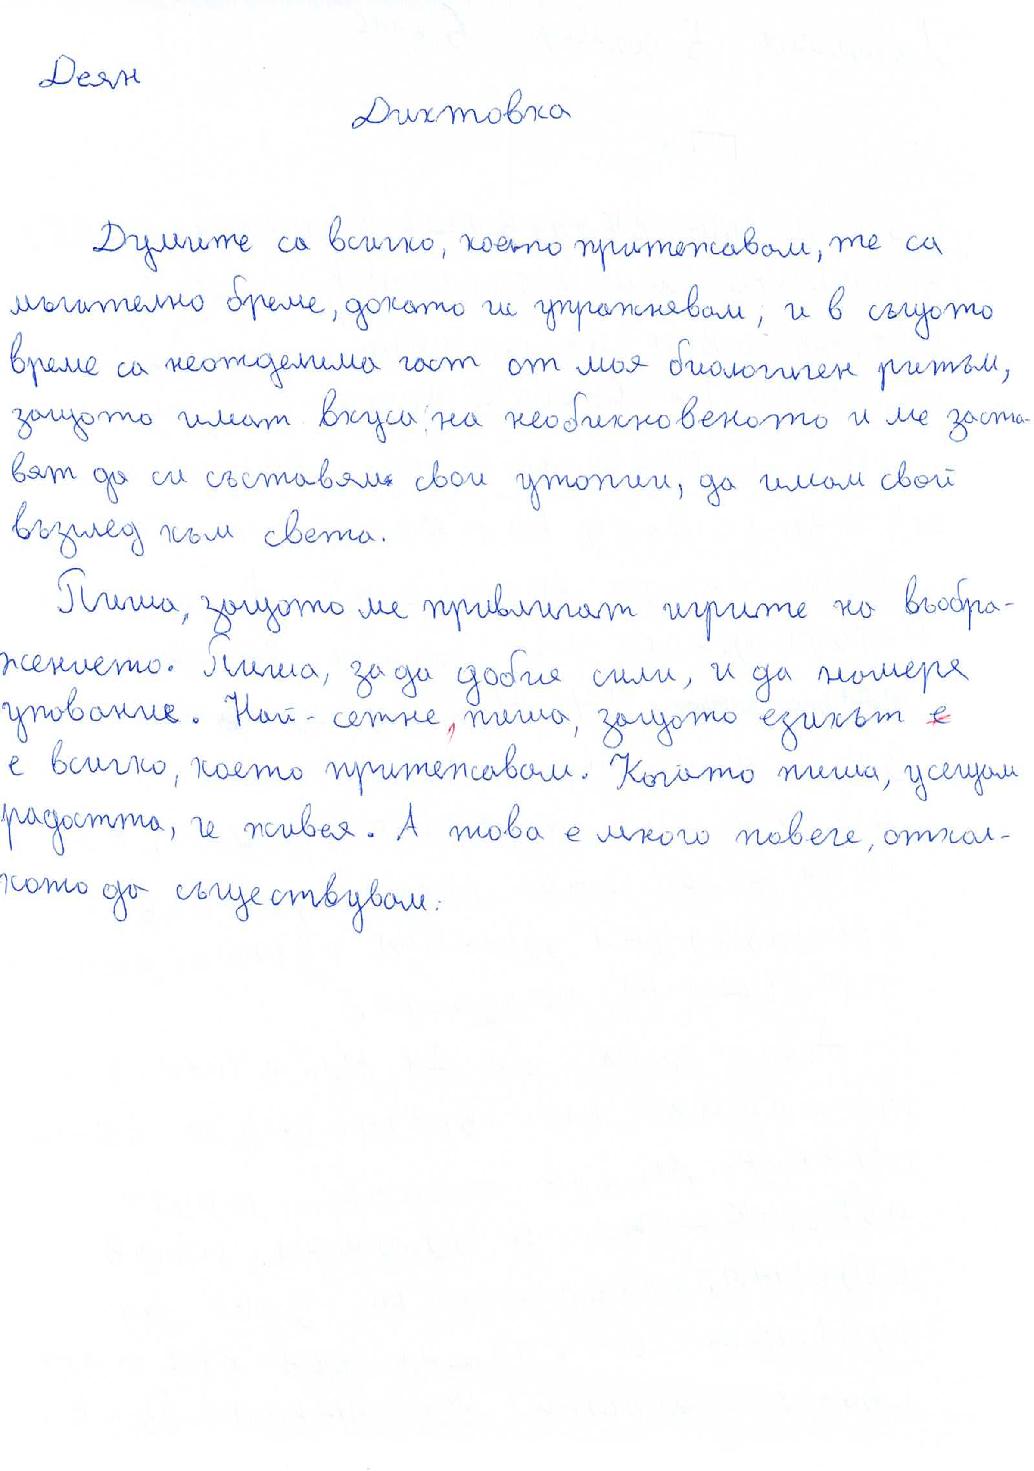 Деян
Диктовка
Думите са всичко, което притежавам, те са
мъчително бреме, докато ги упражнявам, и в същото
време са неотделима част от моя биологичен ритъм,
защото имат вкуса на необикновеното и ме заста-
вят да си съставям свои утопии, да имам свой
възглед към света.
Пиша, защото ме привличат игрите на въобра-
жението. Пиша, за да добия сили, и да намеря
упование. Най-сетне, пиша, защото езикът е
е всичко, което притежавам. Когато пиша, усещам
радостта, че живея. А това е много повече, откол-
кото да съществувам.